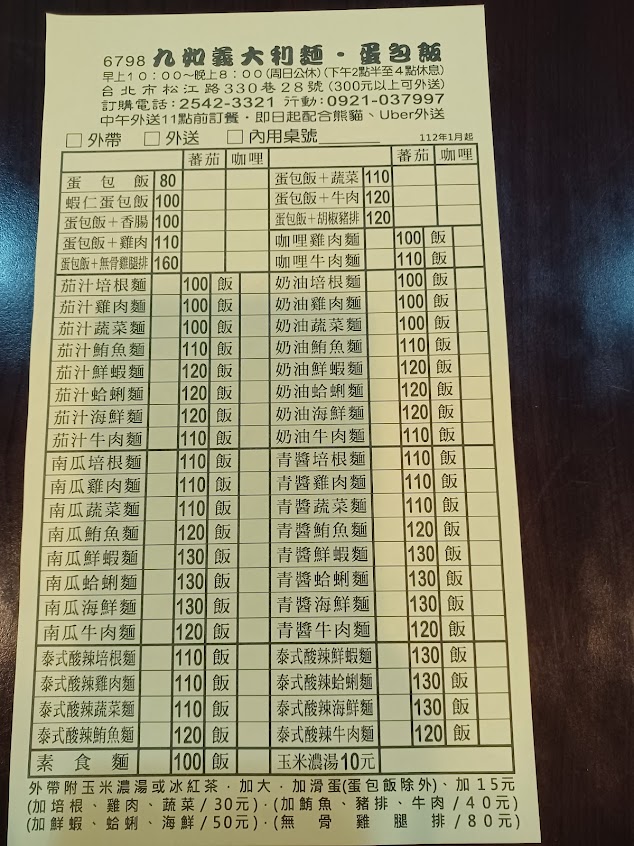 6798 九如義大利麵・蛋包飯
早上10:00~晚上8:00(周日公休)(下午2點半至4點休息)
台北市松江路330巷28號(300元以上可外送)
訂購電話:2542-3321 行動:0921-037997
中午外送11點前訂餐・即日起配合熊貓、Uber外送
□外帶 □外送 □內用桌號______ 112年1月起
蕃茄 咖哩 蕃茄 咖哩
蛋包飯 80 蛋包飯+蔬菜 110
蝦仁蛋包飯 100 蛋包飯+牛肉 120
蛋包飯+香腸 100 蛋包飯+胡椒豬排 120
蛋包飯+雞肉 110 咖哩雞肉麵 100 飯
蛋包飯+無骨雞腿排 160 咖哩牛肉麵 110 飯
茄汁培根麵 100 飯 奶油培根麵 100 飯
茄汁雞肉麵 100 飯 奶油雞肉麵 100 飯
茄汁蔬菜麵 100 飯 奶油蔬菜麵 100 飯
茄汁鮪魚麵 110 飯 奶油鮪魚麵 110 飯
茄汁鮮蝦麵 120 飯 奶油鮮蝦麵 120 飯
茄汁蛤蜊麵 120 飯 奶油蛤蜊麵 120 飯
茄汁海鮮麵 120 飯 奶油海鮮麵 120 飯
茄汁牛肉麵 110 飯 奶油牛肉麵 110 飯
南瓜培根麵 110 飯 青醬培根麵 110 飯
南瓜雞肉麵 110 飯 青醬雞肉麵 110 飯
南瓜蔬菜麵 110 飯 青醬蔬菜麵 110 飯
南瓜鮪魚麵 120 飯 青醬鮪魚麵 120 飯
南瓜鮮蝦麵 130 飯 青醬鮮蝦麵 130 飯
南瓜蛤蜊麵 130 飯 青醬蛤蜊麵 130 飯
南瓜海鮮麵 130 飯 青醬海鮮麵 130 飯
南瓜牛肉麵 120 飯 青醬牛肉麵 120 飯
泰式酸辣培根麵 110 飯 泰式酸辣鮮蝦麵 130 飯
泰式酸辣雞肉麵 110 飯 泰式酸辣蛤蜊麵 130 飯
泰式酸辣蔬菜麵 110 飯 泰式酸辣海鮮麵 130 飯
泰式酸辣鮪魚麵 120 飯 泰式酸辣牛肉麵 120 飯
素食麵 100 飯 玉米濃湯10元
外帶附玉米濃湯或冰紅茶・加大・加滑蛋(蛋包飯除外)、加15元
(加培根、雞肉、蔬菜/30元)・(加鮪魚、豬排、牛肉/40元)
(加鮮蝦、蛤蜊、海鮮/50元)・(無骨雞腿排/80元)